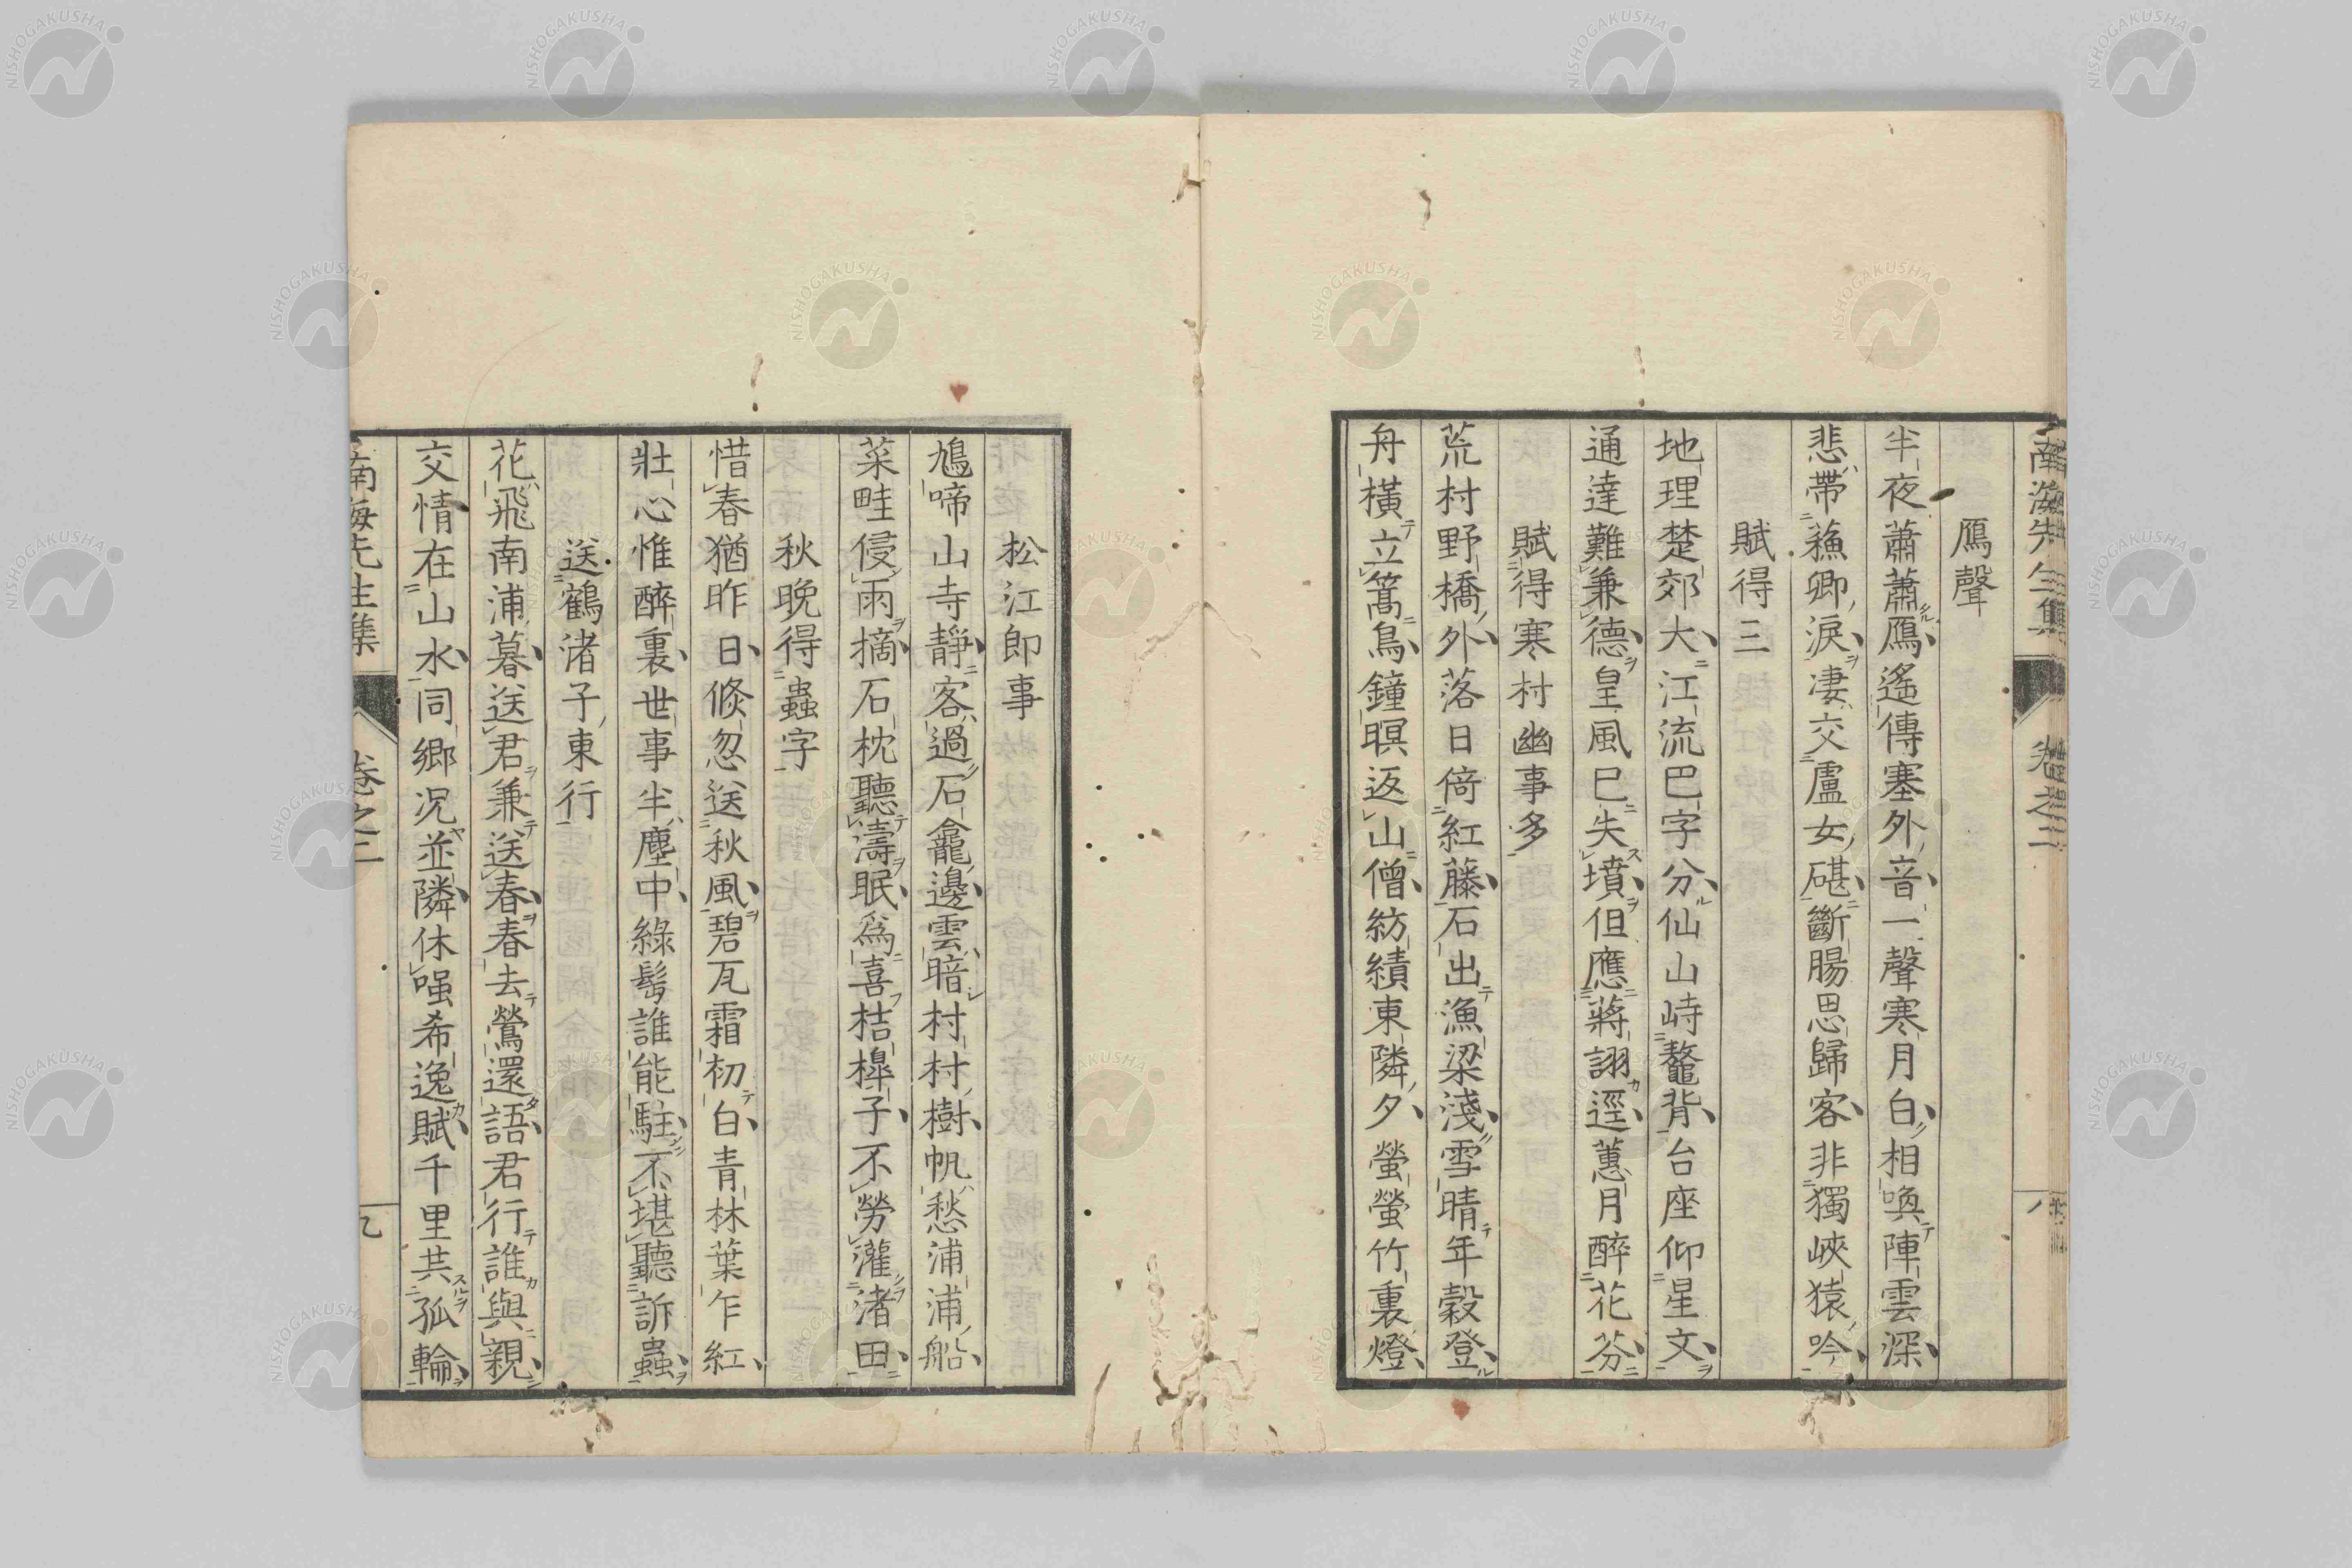 鴈聲
半夜蕭蕭鴈遙傳塞外音一聲寒月白相喚陣雲深
悲帶蘓卿淚凄交盧女碪斷腸思歸客非獨峽猿吟
賦得三
地理楚郊大江流巴字分仙山峙鼇背台座仰星文
通達難兼德皇風已失墳但應蔣詡逕蕙月醉花芬
賦得寒村幽事多
荒村野橋外落日倚紅藤石出漁梁淺雪晴年穀登
舟橫立篙鳥鐘暝返山僧紡績東隣夕螢螢竹裏燈
松江即事
鳩啼山寺靜客過石龕邊雲暗村村樹帆愁浦浦船
菜畦侵雨摘石枕聽濤眠爲喜桔槹子不勞灌渚田
秋晚得蟲字
惜春猶昨日倐忽送秋風碧瓦霜初白青林葉乍紅
壯心惟醉裏世事半塵中綠髩誰能駐不堪聽訴蟲
送鶴渚子東行
花飛南浦暮送君兼送春春去鶯還語君行誰與親
交情在山水同鄉况並隣休嗤希逸賦千里共孤輪
南海先生集
卷之二
九
NISHOGAKUSHA